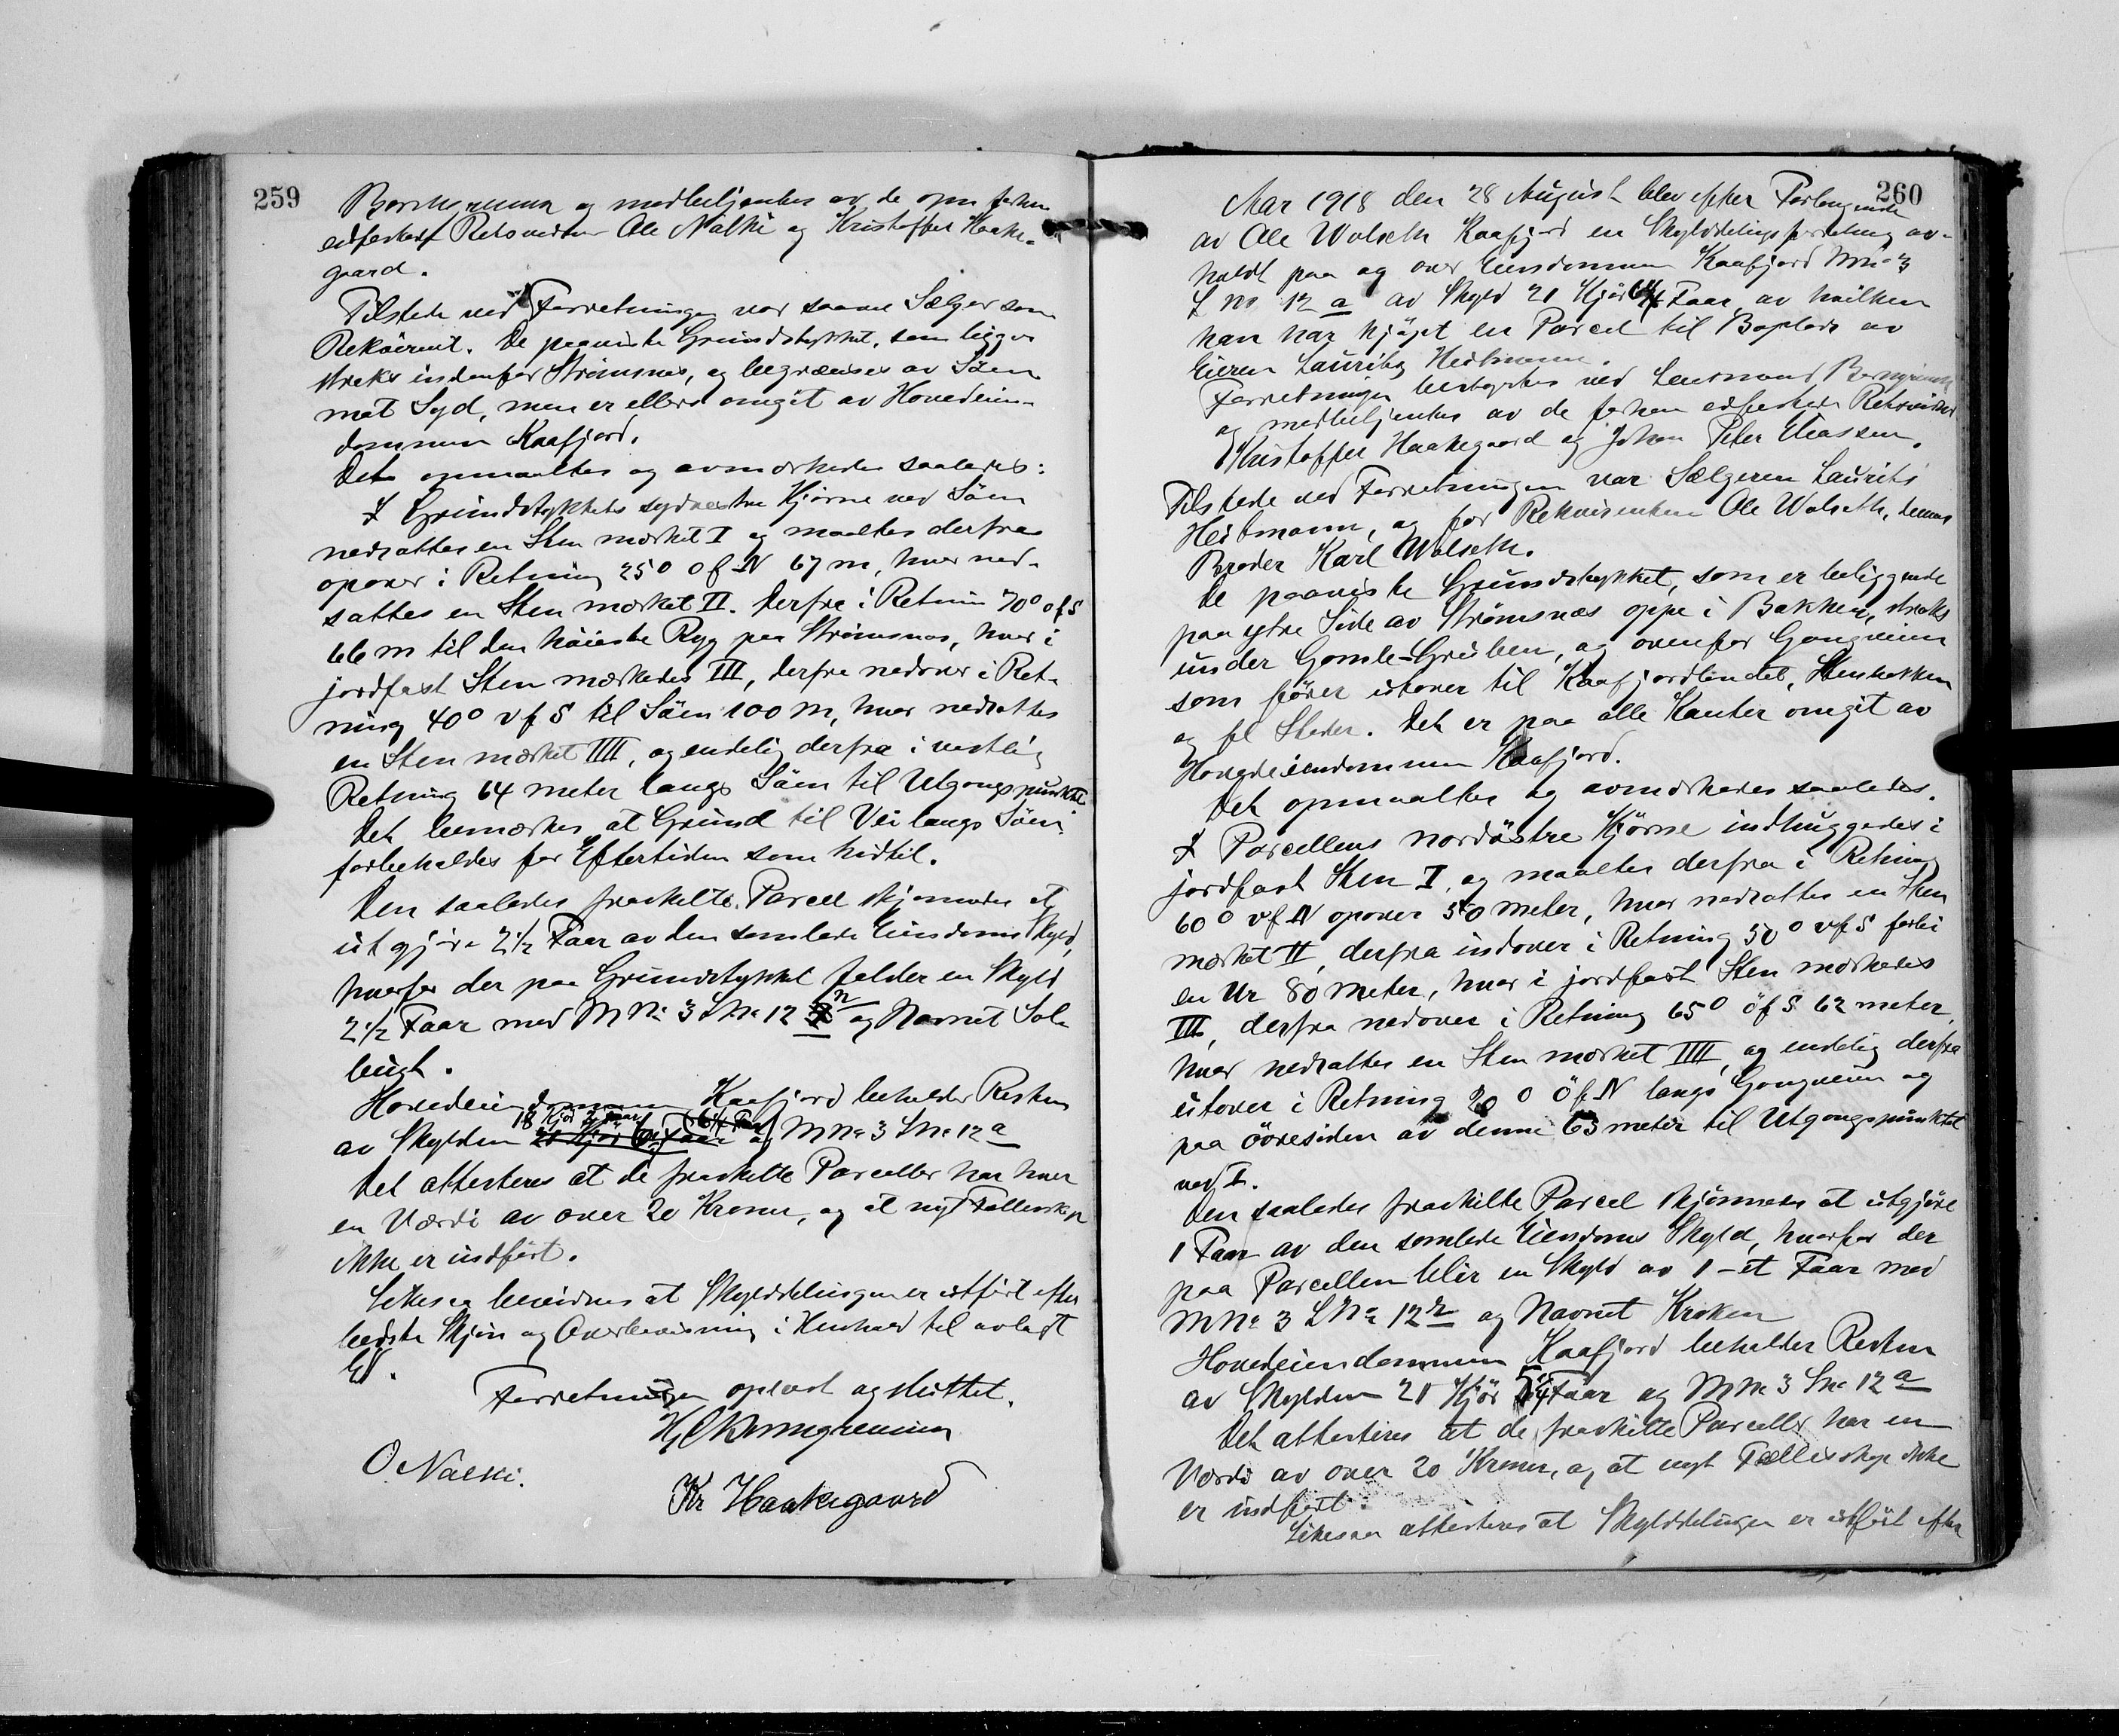 259
og medbetjentes av de opn forhen
edfæstede Retsvidner Ole Nalki og Kristoffer Haake-
gaard.
Tilstede ved Forretningen var saavel Sælger som
Rekvirent. De paaviste Grundstykket, som ligger
straks indenfor Strømsnes, og begrænses av Søen
mot Syd, men er ellers omgit av Hovedeien-
dommen Kaafjord.
Det opmaaltes og avmerkedes saaledes:
I Grundstykkets sydvestre Hjørne ved Søen
nedsattes en Sten mærket I og maaltes derfra
opover i Retning 25° Ø f N 67 m, hvor ned-
sattes en Sten mærket II. Derfra i Retnin 70° Ø f S
66 m til den høieste Ryg paa Strømsnes, hvor i
jordfast Sten mærkedes III, derfra nedover i Ret-
ning 40° V f S til Søen 100 m, hvor nedsattes
en Sten mærket IIII, og endelig derfra i vestlig
Retning 64 meter langs Søen til Utgangspunktet
Det bemærkes at Grund til Vei langs Søen
forbeholdes for Eftertiden som hidtil.
Den saaledes fraskilte Parcel skjønnedes at
utgjøre 2 1/2 Faar av den samlede Eiendoms Skyld,
hvorfor der paa Grundstykket falder en Skyld
2 1/2 Faar med M No 3 L No 12 n og Navnet Sol-
bugt.
Hovedeiendommen Kaafjord beholder Resten
18 Kjør 2 Faar 6 1/4 Faar
av Skylden 21 Kjør Faar og M No 3 L No 12 a
Det attesteres at de fraskilte Parceller har hver
en Værdi av over 20 Kroner, og at nyt Fællesskap
ikke er indført.
Likesaa beeidiges at Skylddelingen er utført efter
bedste Skjøn og Overbevisning i Henhold til avlagt
Ed.
Forretningen oplæst og sluttet.
O. Nalki.
Kr Haakegaard
260
Aar 1918 den 28 August blev efter Forlangende
av Ole Wolseth Kaafjord en Skylddelingsforretning av-
holdt paa og over Eiendommen Kaafjord M No 3
L No 12 a av Skyld 21 Kjør 6 1/4 Faar, av hvilken
han har kjøpt en Parcel til Boplads av
Eieren Laurits Heitmann.
Forretningen bestyrtes ved Lensmand
og medbetjentes av de forhen edfæstede Retsvidner
Kristoffer Haakegaard og Johan Peter Eliassen.
Tilstede ved Forretningen var Sælgeren Laurits
Heitmann, og for Rekvirenten Ole Wolseth, dennes
Broder Karl Wolseth.
De paaviste Grundstykket, som er beliggende
paa ytre Side av Strømsnæs oppe i Bakken, straks
under Gamle-Gruben, og ovenfor Gangveien
som fører utover til Kaafjordbundet, Stenbakken
og fl Steder. Det er paa alle Kanter omgit av
Hovedeiendommen Kaafjord.
Det opmaaltes og avmerkedes saaledes.
I Parcellens nordøstre Hjørne indhuggedes i
jordfast Sten I, og maaltes derfra i Retning
60° V f N opover 50 meter, hvor nedsattes en Sten
mærket II, derfra indover i Retning 50° V f S forbi
en Ur 80 meter, hvor i jordfast Sten mærkedes
III, derfra nedover i Retning 65° Ø f S 62 meter,
hvor nedsattes en Sten mærket IIII, og endelig derfra
utover i Retning 20° Ø f N langs Gangveien og
paa øvresiden av denne 63 meter til Utgangspunktet
ved I.
Den saaledes fraskilte Parcel skjønnedes at utgjøre
1 Faar av den samlede Eiendoms Skyld, hvorfor der
paa Parcellen blir en Skyld av 1 - et Faar med
M No 3 L No 12 og Navnet Kroken
Hovedeiendommen Kaafjord beholder Resten
av Skylden 21 Kjør 5 1/4 Faar og M No 3 L No 12 a
Det attesteres at de fraskilte Parceller har en
Værdi av over 20 Kroner, og at nyt Fællesskap ikke
er indført.
Likesaa attesteres at Skylddelingen er utført efter